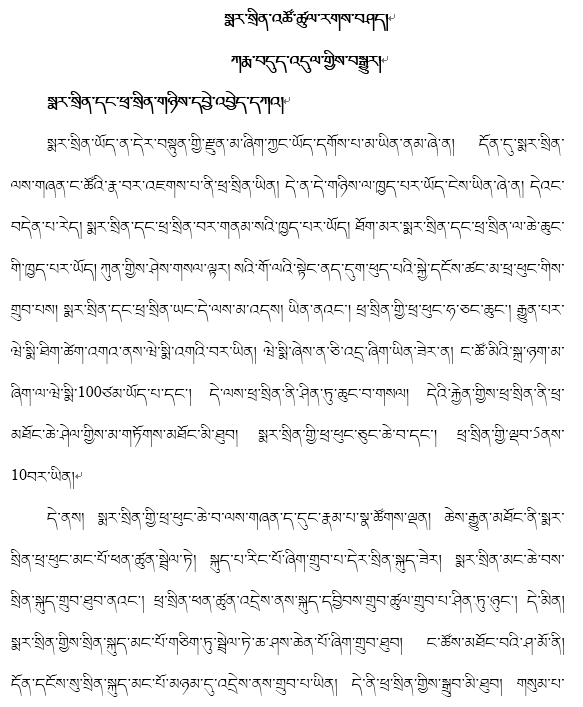 སྨར་སྲིན་འཚོ་ཚུལ་རགས་བཤད།
ཀརྨ་བདུད་འདུལ་གྱིས་བསྒྱུར།
སྨར་སྲིན་དང་ཕྲ་སྲིན་གཉིས་དབྱེ་འབྱེད་དཀའ།
སྨར་སྲིན་ཡོད་ན་དེར་བསྟུན་གྱི་རྫུན་མ་ཞིག་ཀྱང་ཡོད་དགོས་པ་མ་ཡིན་ནམ་ཞེ་ན། དོན་དུ་སྨར་སྲིན་
ལས་གཞན་ང་ཚོའི་རྣ་བར་འཇགས་པ་ནི་ཕྲ་སྲིན་ཡིན། དེ་ན་དེ་གཉིས་ལ་ཁྱད་པར་ཡོད་ངེས་ཡིན་ཞེ་ན། དེའང་
བདེན་པ་རེད། སྨར་སྲིན་དང་ཕྲ་སྲིན་བར་གནམ་སའི་ཁྱད་པར་ཡོད། ཐོག་མར་སྨར་སྲིན་དང་ཕྲ་སྲིན་ལ་ཆེ་ཆུང་
གི་ཁྱད་པར་ཡོད། ཀུན་གྱིས་ཤེས་གསལ་ལྟར། སའི་གོ་ལའི་སྟེང་ནད་དུག་ཕུད་པའི་སྐྱེ་དངོས་ཚང་མ་ཕྲ་ཕུང་གིས་
གྲུབ་པས། སྨར་སྲིན་དང་ཕྲ་སྲིན་ཡང་དེ་ལས་མ་འདས། ཡིན་ནའང་། ཕྲ་སྲིན་གྱི་ཕྲ་ཕུང་ཧ་ཅང་ཆུང་། རྒྱུན་པར་
ཝེ་སྨི་ཐིག་ཚེག་འགའ་ནས་ཝེ་སྨི་འགའི་བར་ཡིན། ཝེ་སྨི་ཞེས་ན་ཅི་འདྲ་ཞིག་ཡིན་ཟེར་ན། ང་ཚོ་མིའི་སྐྲ་ཉག་མ་
ཞིག་ལ་ཝེ་སྨི་100ཙམ་ཡོད་པ་དང་། དེ་ལས་ཕྲ་སྲིན་ནི་ཤིན་ཏུ་ཆུང་བ་གསལ། དེའི་རྐྱེན་གྱིས་ཕྲ་སྲིན་ནི་ཕྲ་
མཐོང་ཆེ་ཤེལ་གྱིས་མ་གཏོགས་མཐོང་མི་ཐུབ། སྨར་སྲིན་གྱི་ཕྲ་ཕུང་ཅུང་ཆེ་བ་དང་། ཕྲ་སྲིན་གྱི་ལྡབ་5ནས་
10བར་ཡིན།
དེ་ནས། སྨར་སྲིན་གྱི་ཕྲ་ཕུང་ཆེ་བ་ལས་གཞན་ད་དུང་རྣམ་པ་སྣ་ཚོགས་ལྡན། ཆེས་རྒྱུན་མཐོང་ནི་སྨར་
སྲིན་ཕྲ་ཕུང་མང་པོ་ཕན་ཚུན་སྦྲེལ་ཏེ། སྐུད་པ་རིང་པོ་ཞིག་གྲུབ་པ་དེར་སྲིན་སྐུད་ཟེར། སྨར་སྲིན་མང་ཆེ་བས་
སྲིན་སྐུད་གྲུབ་ཐུབ་ནའང་། ཕྲ་སྲིན་ཕན་ཚུན་འདྲེས་ནས་སྐུད་དབྱིབས་གྲུབ་ཚུལ་གྲུབ་པ་ཤིན་ཏུ་ཉུང་། དེ་མིན།
སྨར་སྲིན་གྱིས་སྲིན་སྐུད་མང་པོ་གཅིག་ཏུ་སྦྲེལ་ཏེ་ཆ་ཤས་ཆེན་པོ་ཞིག་གྲུབ་ཐུབ། ང་ཚོས་མཐོང་བའི་ཤ་མོ་ནི།
དོན་དངོས་སུ་སྲིན་སྐུད་མང་པོ་མཉམ་དུ་འདྲེས་ནས་གྲུབ་པ་ཡིན། དེ་ནི་ཕྲ་སྲིན་གྱིས་སྒྲུབ་མི་ཐུབ། གསུམ་པ་